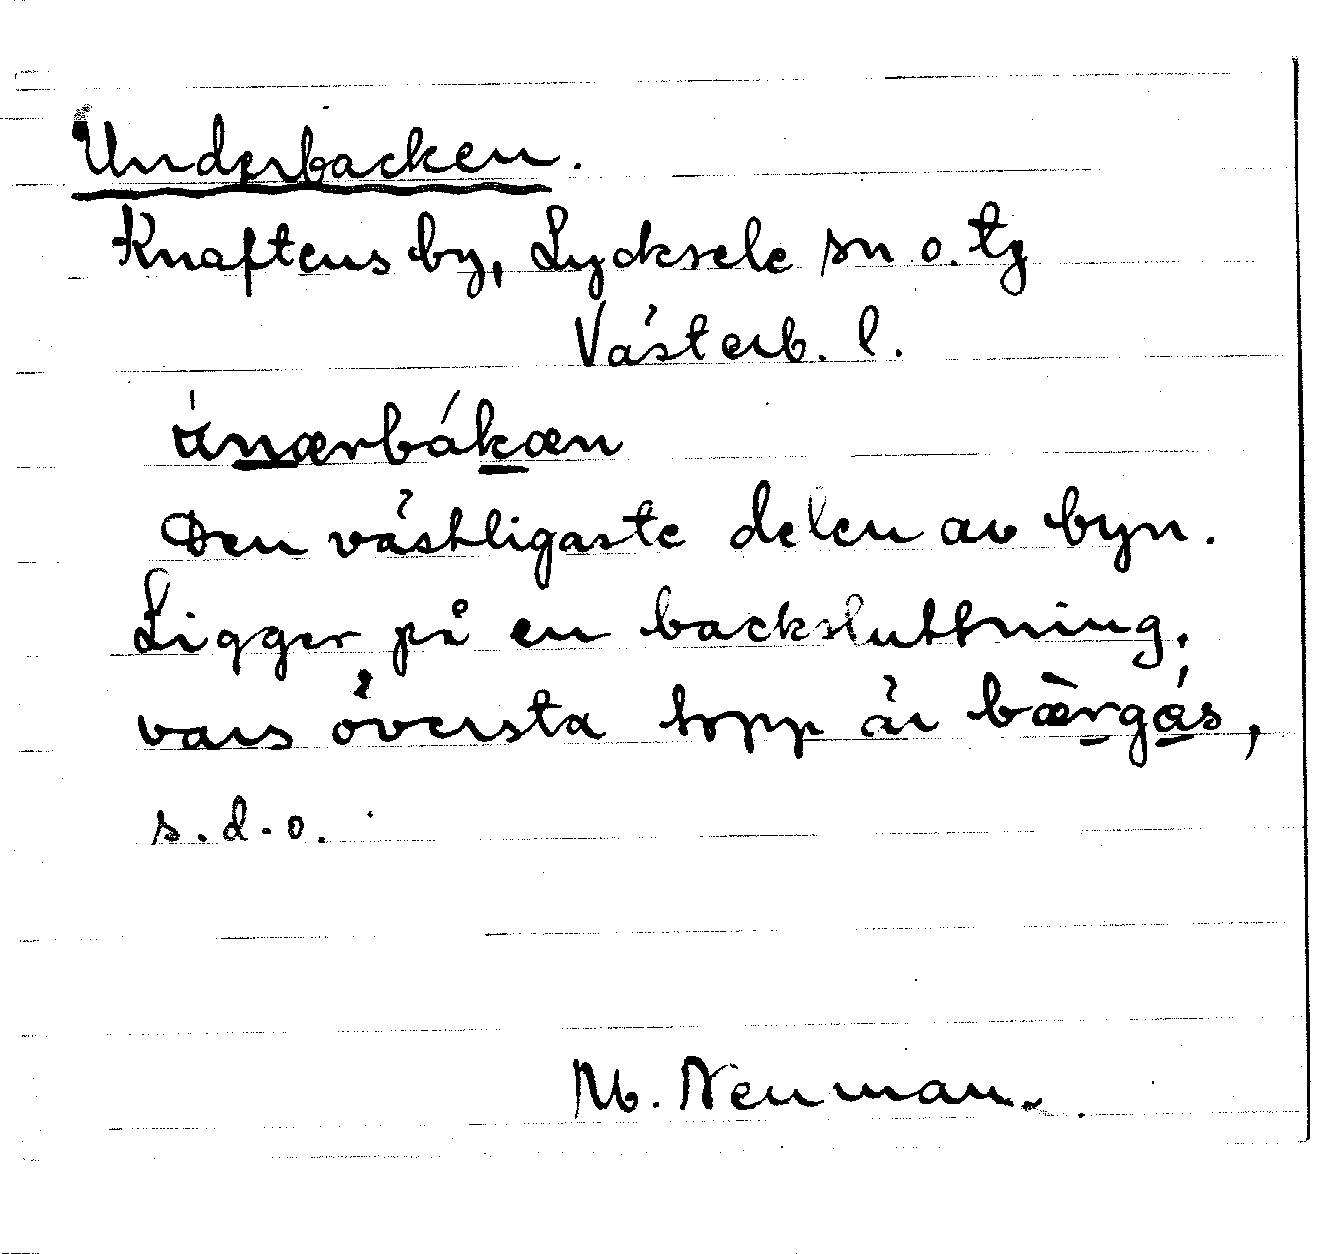 Underbacken.
Knaftens by, Lycksele sn o. tg
Västerb. l.
ùnærbákæn
Den västligaste delen av byn.
Ligger på en backsluttning,
vars översta topp är bæ̀rgás,
s.d.o.
M. Neuman.